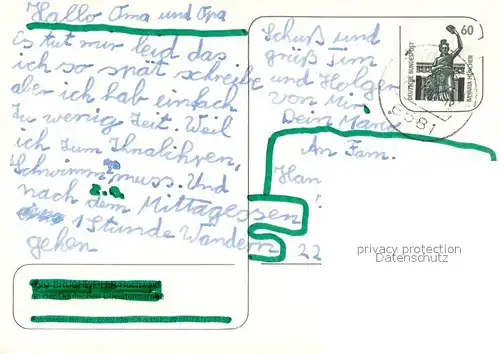 Hallo Oma und Opa
Es tut mir leid das
ich so spät schreibe
aber ich hab einfach
zu wenig Zeit. Weil
ich zum
Schwimm muss. Und
nach dem Mittagessen
1 Stunde Wandern
gehen
Schuß und
grüß Tim
und Holgen
von Mir
Dein
An Fam.
Han
22
60
DEUTSCHE BUNDESPOST
BAVARIA MÜNCHEN
8581
privacy protection
Datenschutz